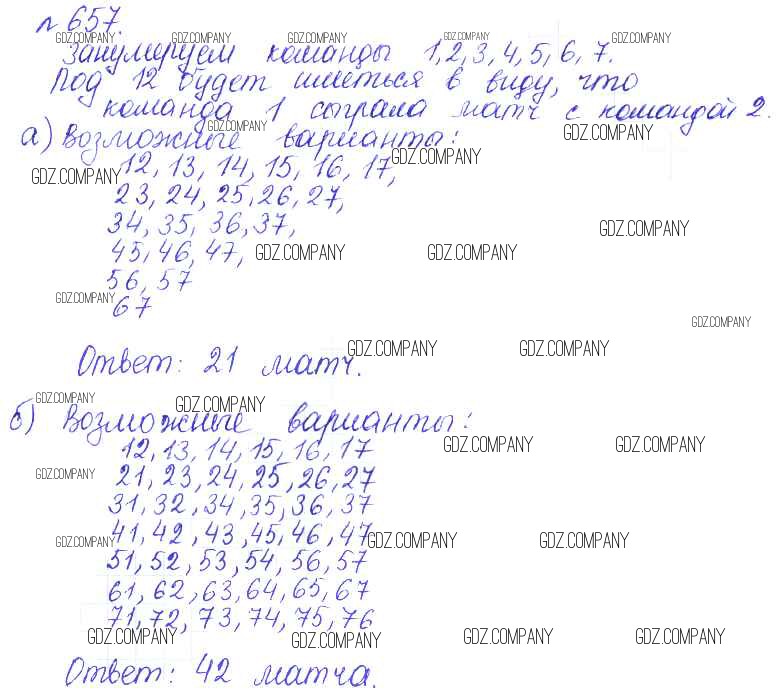 № 657.
GDZ.COMPANY GDZ.COMPANY GDZ.COMPANY GDZ.COMPANY GDZ.COMPANY
Занумеруем команды 1,2,3,4,5,6,7.
Под 12 будет иметься в виду, что
команда 1 сыграла матч с командой 2.
GDZ.COMPANY GDZ.COMPANY
а) Возможные варианты:
GDZ.COMPANY
12, 13, 14, 15, 16, 17,
GDZ.COMPANY
23, 24, 25, 26, 27,
34, 35, 36, 37,
GDZ.COMPANY
45, 46, 47,
GDZ.COMPANY GDZ.COMPANY
56, 57
GDZ.COMPANY
67
GDZ.COMPANY
GDZ.COMPANY GDZ.COMPANY
Ответ: 21 матч.
GDZ.COMPANY GDZ.COMPANY
б) Возможные варианты:
12, 13, 14, 15, 16, 17
GDZ.COMPANY GDZ.COMPANY
21, 23, 24, 25, 26, 27
GDZ.COMPANY
31, 32, 34, 35, 36, 37
41, 42, 43, 45, 46, 47
GDZ.COMPANY GDZ.COMPANY GDZ.COMPANY
51, 52, 53, 54, 56, 57
61, 62, 63, 64, 65, 67
71, 72, 73, 74, 75, 76
GDZ.COMPANY GDZ.COMPANY GDZ.COMPANY GDZ.COMPANY
Ответ: 42 матча.